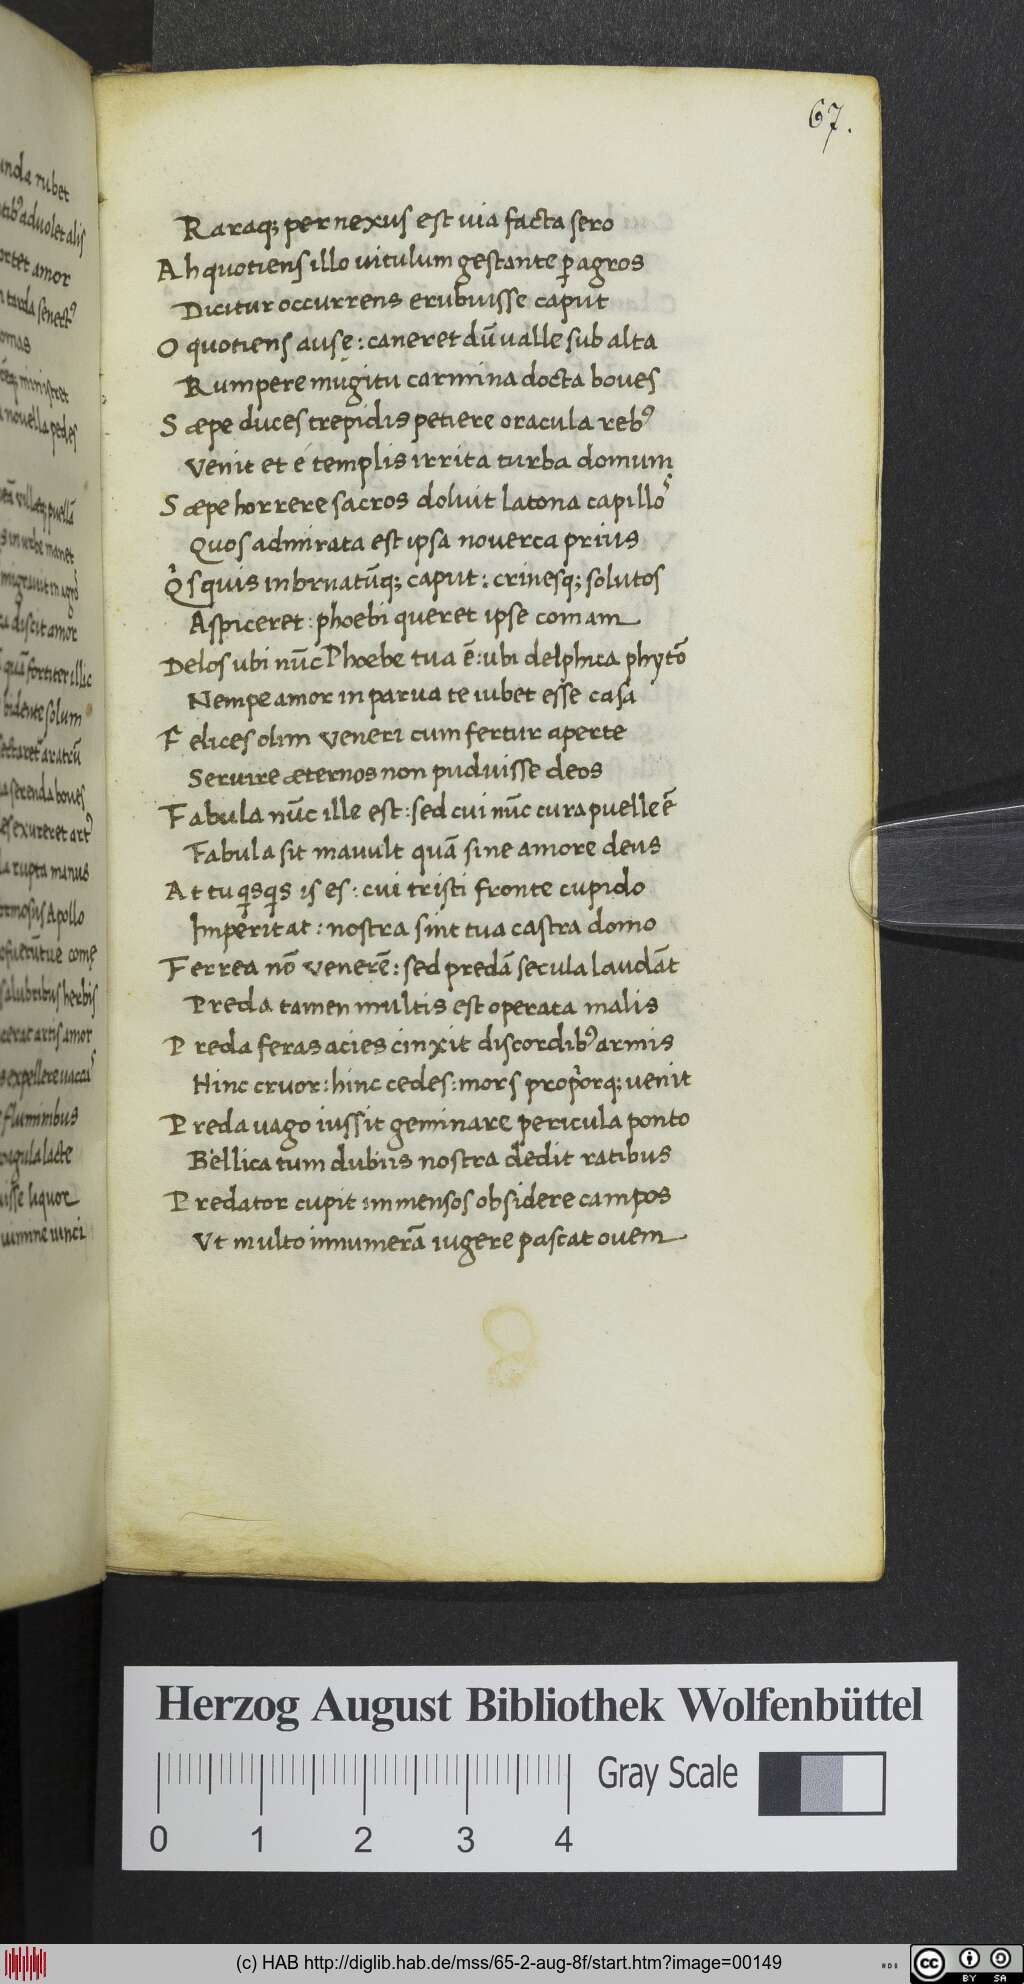 anda rubet
atib⁹ aduolet alis
ortet amor
n tarda senect⁹
omas
cetq; ministret
a nouella pedes
etã villatq; puellã
s in urbe manet
migrauit in agros
ca discit amor
quã fortiter illic
bidente solum
sectaret̃ aratrũ
a serenda boues
es exureret art⁹
la rupta manus
ormosus Apollo
ofuerũtue comę
salubribus herbis
cerat artis amor
s expellere uaccas
fluminibus
oagula lacte
uisse liquor
uimine iunci
67.
Raraq; per nexus est uia facta sero
Ah quotiens illo uitulum gestante ꝑ agros
Dicitur occurrens erubuisse caput
O quotiens ausę: caneret dũ ualle sub alta
Rumpere mugitu carmina docta boues
Sæpe duces trepidis petiere oracula reb⁹
Venit et é templis irrita turba domum
Sæpe horrere sacros doluit latona capillos
Quos admirata est ipsa nouerca prius
Qͥsquis inornatũq; caput: crinesq; solutos
Aspiceret: phoebi queret ipse comam
Delos ubi nũc Phoebe tua ẽ: ubi delphica phytõ
Nempe amor in parua te iubet esse casa
Felices olim Veneri cum fertur aperte
Seruire æternos non puduisse deos
Fabula nũc ille est: sed cui nũc cura puelle ẽ
Fabula sit mauult quã sine amore deus
At tu qͥsqͥs is es: cui tristi fronte cupido
Imperitat: nostra sint tua castra domo
Ferrea nõ Venerẽ: sed predã secula laudãt
Preda tamen multis est operata malis
Preda feras acies cinxit discordib⁹ armis
Hinc cruor: hinc cedes: mors propͥorq; uenit
Preda uago iussit geminare pericula ponto
Bellica tum dubiis nostra dedit ratibus
Predator cupit immensos obsidere campos
Vt multo innumerã iugere pascat ouem
Herzog August Bibliothek Wolfenbüttel
Gray Scale
0 1 2 3 4
(c) HAB http://diglib.hab.de/mss/65-2-aug-8f/start.htm?image=00149
cc BY SA